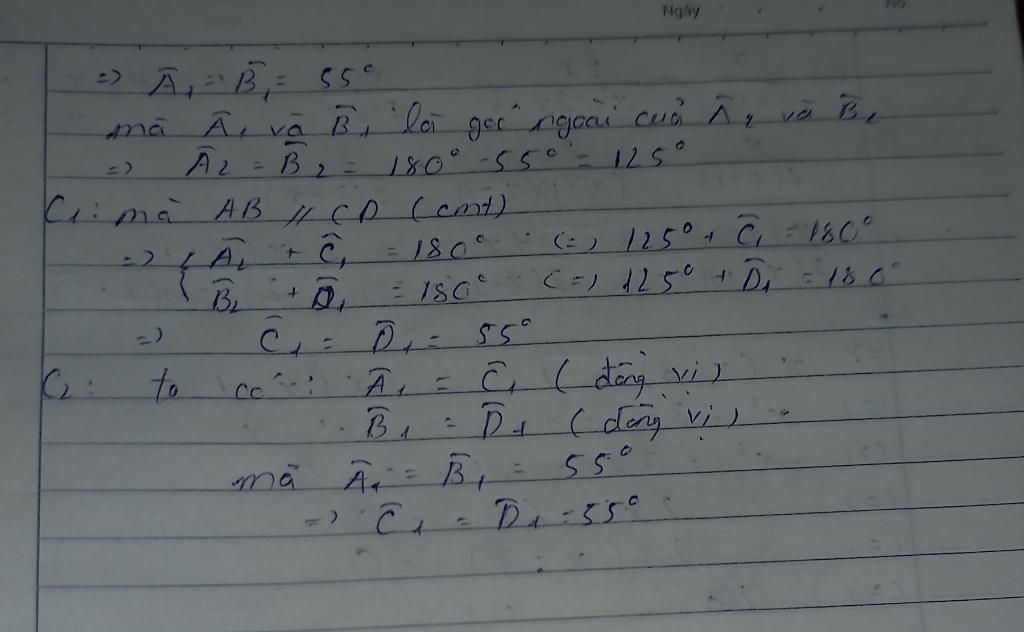 Ngày No.
=> Â₁ = B̂₁ = 55°
mà Â₁ và B̂₁ là góc ngoài của Â₂ và B̂₂
=> Â₂ = B̂₂ = 180° - 55° = 125°
C₁: mà AB // CD (cmt)
=> { Â₂ + Ĉ₁ = 180° (=) 125° + Ĉ₁ = 180°
B̂₂ + D̂₁ = 180° (=) 125° + D̂₁ = 180°
=> Ĉ₁ = D̂₁ = 55°
C₂: ta có: Â₁ = Ĉ₁ (đồng vị)
B̂₁ = D̂₁ (đồng vị)
mà Â₁ = B̂₁ = 55°
=> Ĉ₁ = D̂₁ = 55°